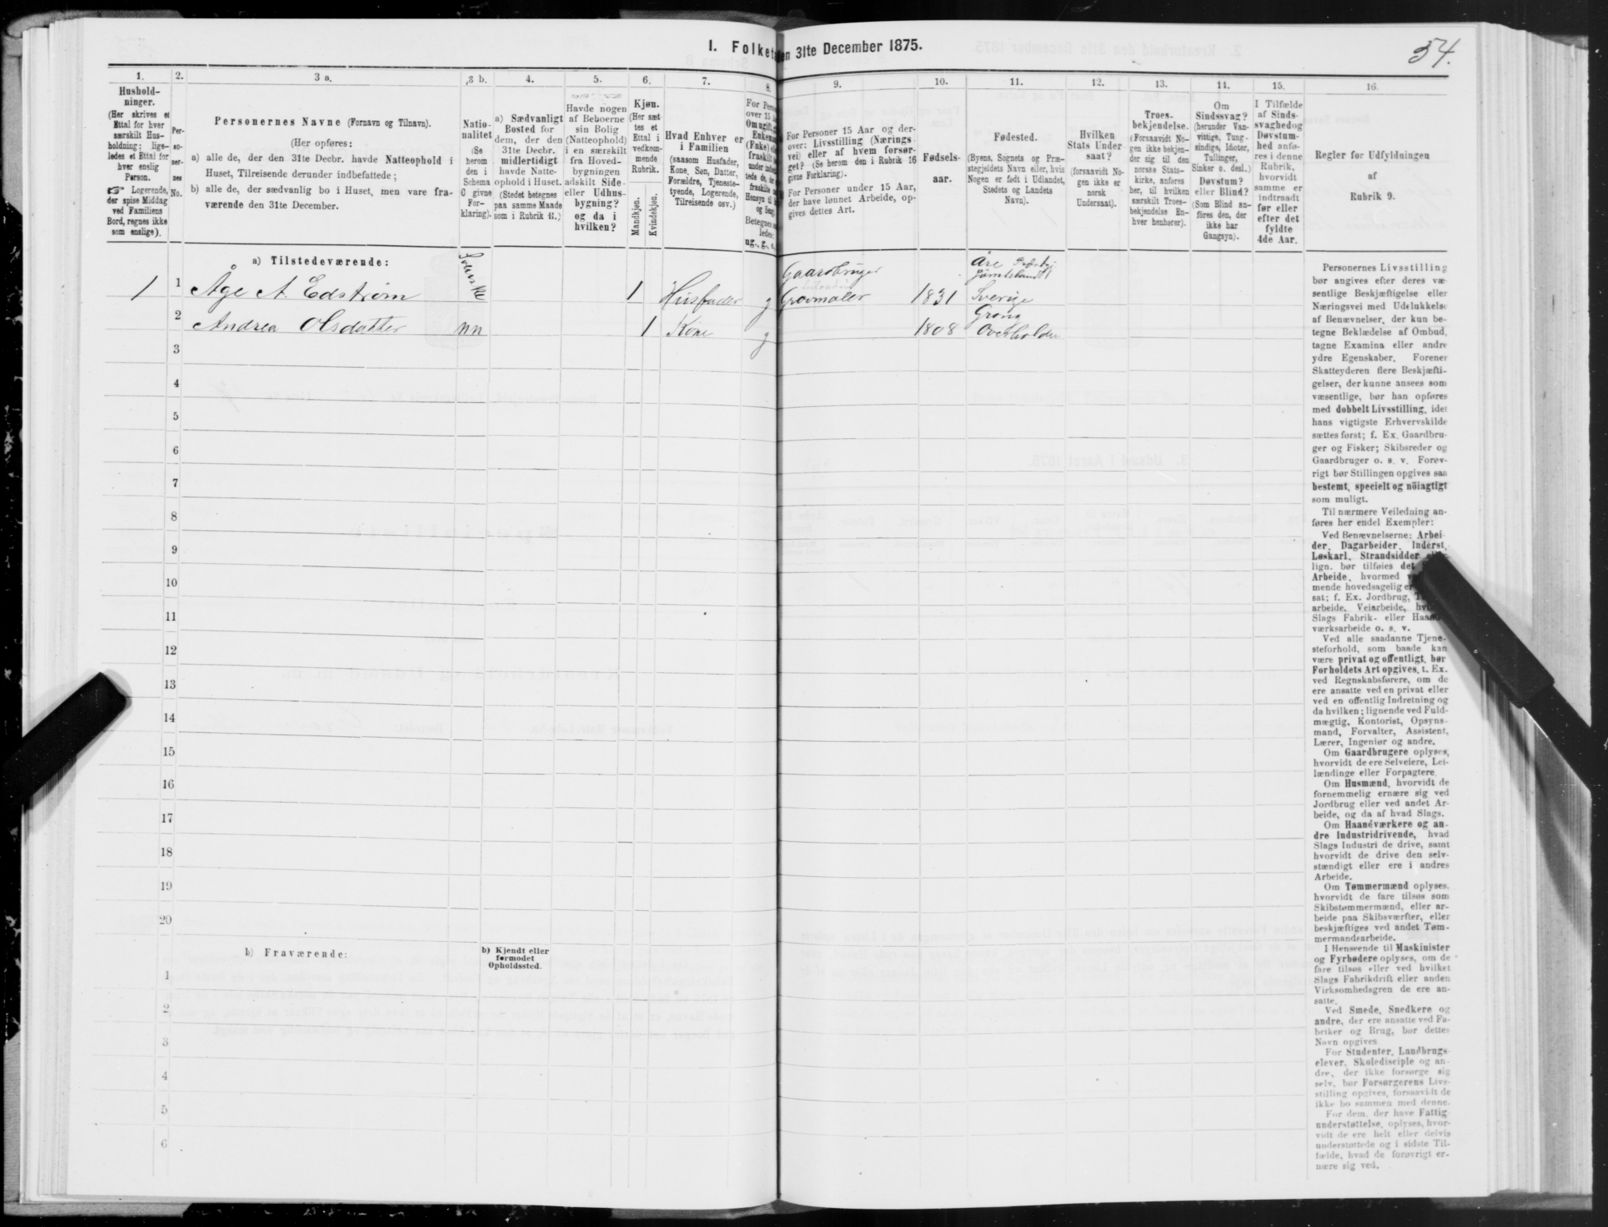 I. Folket
en 31te December 1875.
54.
1.
2.
3 a.
3 b.
4.
5.
6.
7.
8.
9.
10.
11.
12.
13.
14.
15.
16.
Hushold-
ninger.
(Her skrives et
Ettal for hver
særskilt Hus-
holdning; lige-
ledes et Ettal for
hver enslig
Person.
☞ Logerende,
der spise Middag
ved Familiens
Bord, regnes ikke
som enslige).
Per-
so-
ner-
nes
No.
Personernes Navne (Fornavn og Tilnavn).
(Her opføres:
a) alle de, der den 31te Decbr. havde Natteophold i
Huset, Tilreisende derunder indbefattede;
b) alle de, der sædvanlig bo i Huset, men vare fra-
værende den 31te December.
Natio-
nalitet
(Se
herom
den i
Schema
O givne
For-
klaring).
a) Sædvanligt
Bosted for
dem, der den
31te Decbr.
midlertidigt
havde Natte-
ophold i Huset.
(Stedet betegnes
paa samme Maade
som i Rubrik 11.)
Havde nogen
af Beboerne
sin Bolig
(Natteophold)
i en særskilt
fra Hoved-
bygningen
adskilt Side-
eller Udhus-
bygning?
og da i
hvilken?
Kjøn.
(Her sæt
tes et
Ettal i
vedkom-
mende
Rubrik.
Mandkjøn.
Kvindekjøn.
Hvad Enhver er
i Familien
(saasom Husfader,
Kone, Søn, Datter,
Forældre, Tjeneste-
tyende, Logerende,
Tilreisende osv.)
For Personer 15 Aar og der-
over: Livsstilling (Nærings-
vei) eller af hvem forsør-
get? (Se herom den i Rubrik 16
givne Forklaring).
For Personer under 15 Aar,
der have lønnet Arbeide, op-
gives dettes Art.
Fødsels-
aar.
Fødested.
(Byens, Sognets og Præ-
stegjeldets Navn eller, hvis
Nogen er født i Udlandet,
Stedets og Landets
Navn).
Hvilken
Stats Under
saat?
(forsaavidt No-
gen ikke er
norsk
Undersaat).
Troes-
bekjendelse.
(Forsaavidt No-
gen ikke bekjen-
der sig til den
norske Stats-
kirke, anføres
her, til hvilken
særskilt Troes-
bekjendelse En-
hver henhører).
Om
Sindssvag?
(herunder Van-
vittige, Tung-
sindige, Idioter,
Tullinger,
Sinker o. desl.)
Døvstum?
eller Blind?
(Som Blind an-
føres den, der
ikke har
Gangsyn).
I Tilfælde
af Sinds-
svaghed og
Døvstum-
hed anfø-
res i denne
Rubrik,
hvorvidt
samme er
indtraadt
før eller
efter det
fyldte
4de Aar.
Regler for Udfyldningen
af
Rubrik 9.
a) Tilstedeværende:
1 1 Åge A Edstrøm 1 Husfader g Gaardbruger Gravmaler 1831 Åre Jämtland Sverige
2 Andrea Olsdatter nn 1 Kone g 1808 Grong Overhalden
3
4
5
6
7
8
9
10
11
12
13
14
15
16
17
18
19
20
b) Fraværende:
b) Kjendt eller
formodet
Opholdssted.
1
2
3
4
5
6
Personernes Livsstilling
bør angives efter deres væ-
sentlige Beskjæftigelse eller
Næringsvei med Udelukkelse
af Benævnelser, der kun be-
tegne Beklædelse af Ombud,
tagne Examina eller andre
ydre Egenskaber. Forener
Skatteyderen flere Beskjæfti-
gelser, der kunne ansees som
væsentlige, bør han opføres
med dobbelt Livsstilling, idet
hans vigtigste Erhvervskilde
sættes først; f. Ex. Gaardbru-
ger og Fisker; Skibsreder og
Gaardbruger o. s. v. Forøv-
rigt bør Stillingen opgives saa
bestemt, specielt og nöiagtigt
som muligt.
Til nærmere Veiledning an-
føres her endel Exempler:
Ved Benævnelserne: Arbei-
der, Dagarbeider, Inderst,
Løskarl, Strandsidder
lign. bør tilføies det
Arbeide, hvormed
mende hovedsagelig er
sat; f. Ex. Jordbrug,
arbeide, Veiarbeide,
Slags Fabrik- eller
værksarbeide o. s. v.
Ved alle saadanne Tjene-
steforhold, som baade kan
være privat og offentligt, bør
Forholdets Art opgives, t. Ex.
ved Regnskabsførere, om de
ere ansatte ved en privat eller
ved en offentlig Indretning og
da hvilken; lignende ved Fuld-
mægtig, Kontorist, Opsyns-
mand, Forvalter, Assistent,
Lærer, Ingeniør og andre.
Om Gaardbrugere oplyses,
hvorvidt de ere Selveiere, Lei-
lændinge eller Forpagtere.
Om Husmænd, hvorvidt de
fornemmelig ernære sig ved
Jordbrug eller ved andet Ar-
beide, og da af hvad Slags.
Om Haandværkere og an-
dre Industridrivende, hvad
Slags Industri de drive, samt
hvorvidt de drive den selv-
stændigt eller ere i andres
Arbeide.
Om Tømmermænd oplyses,
hvorvidt de fare tilsøs som
Skibstømmermænd, eller ar-
beide paa Skibsværfter, eller
beskjæftiges ved andet Tøm-
mermandsarbeide.
I Henseende til Maskinister
og Fyrbødere oplyses, om de
fare tilsøs eller ved hvilket
Slags Fabrikdrift eller anden
Virksomhedsgren de ere an-
satte.
Ved Smede, Snedkere og
andre, der ere ansatte ved Fa-
briker og Brug, bør dettes
Navn opgives
For Studenter, Landbrugs-
elever, Skoledisciple og an-
dre, der ikke forsørge sig
selv, bør Forsørgerens Livs-
stilling opgives, forsaavidt de
ikke bo sammen med denne.
For dem, der have Fattig-
understøttelse, oplyses, hvor-
vidt de ere helt eller delvis
understøttede og i sidste Til-
fælde, hvad de forøvrigt er-
nære sig ved.